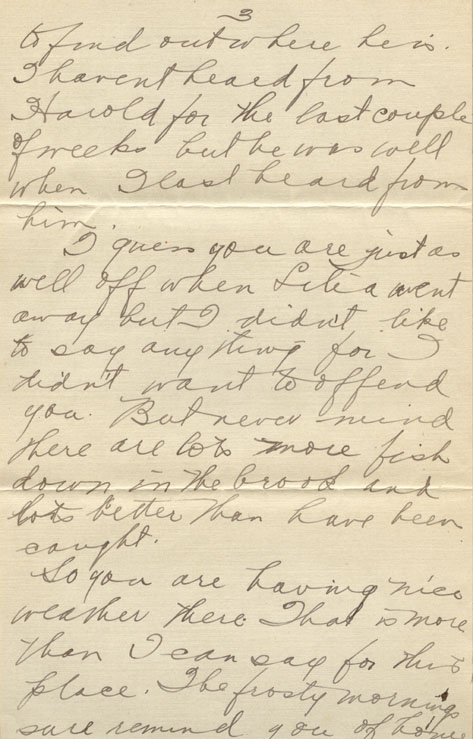 3
to find out where he is.
I havent heard from
Harold for the last couple
of weeks but he was well
when I last heard from
him.
I guess you are just as
well off when went
away but I didn't like
to say anything for I
didn't want to offend
you. But never mind
there are lots more fish
down in the brook and
lots better than have been
caught.
So you are having nice
weather there. That is more
than I can say for this
place. The frosty mornings
sure remind you of home